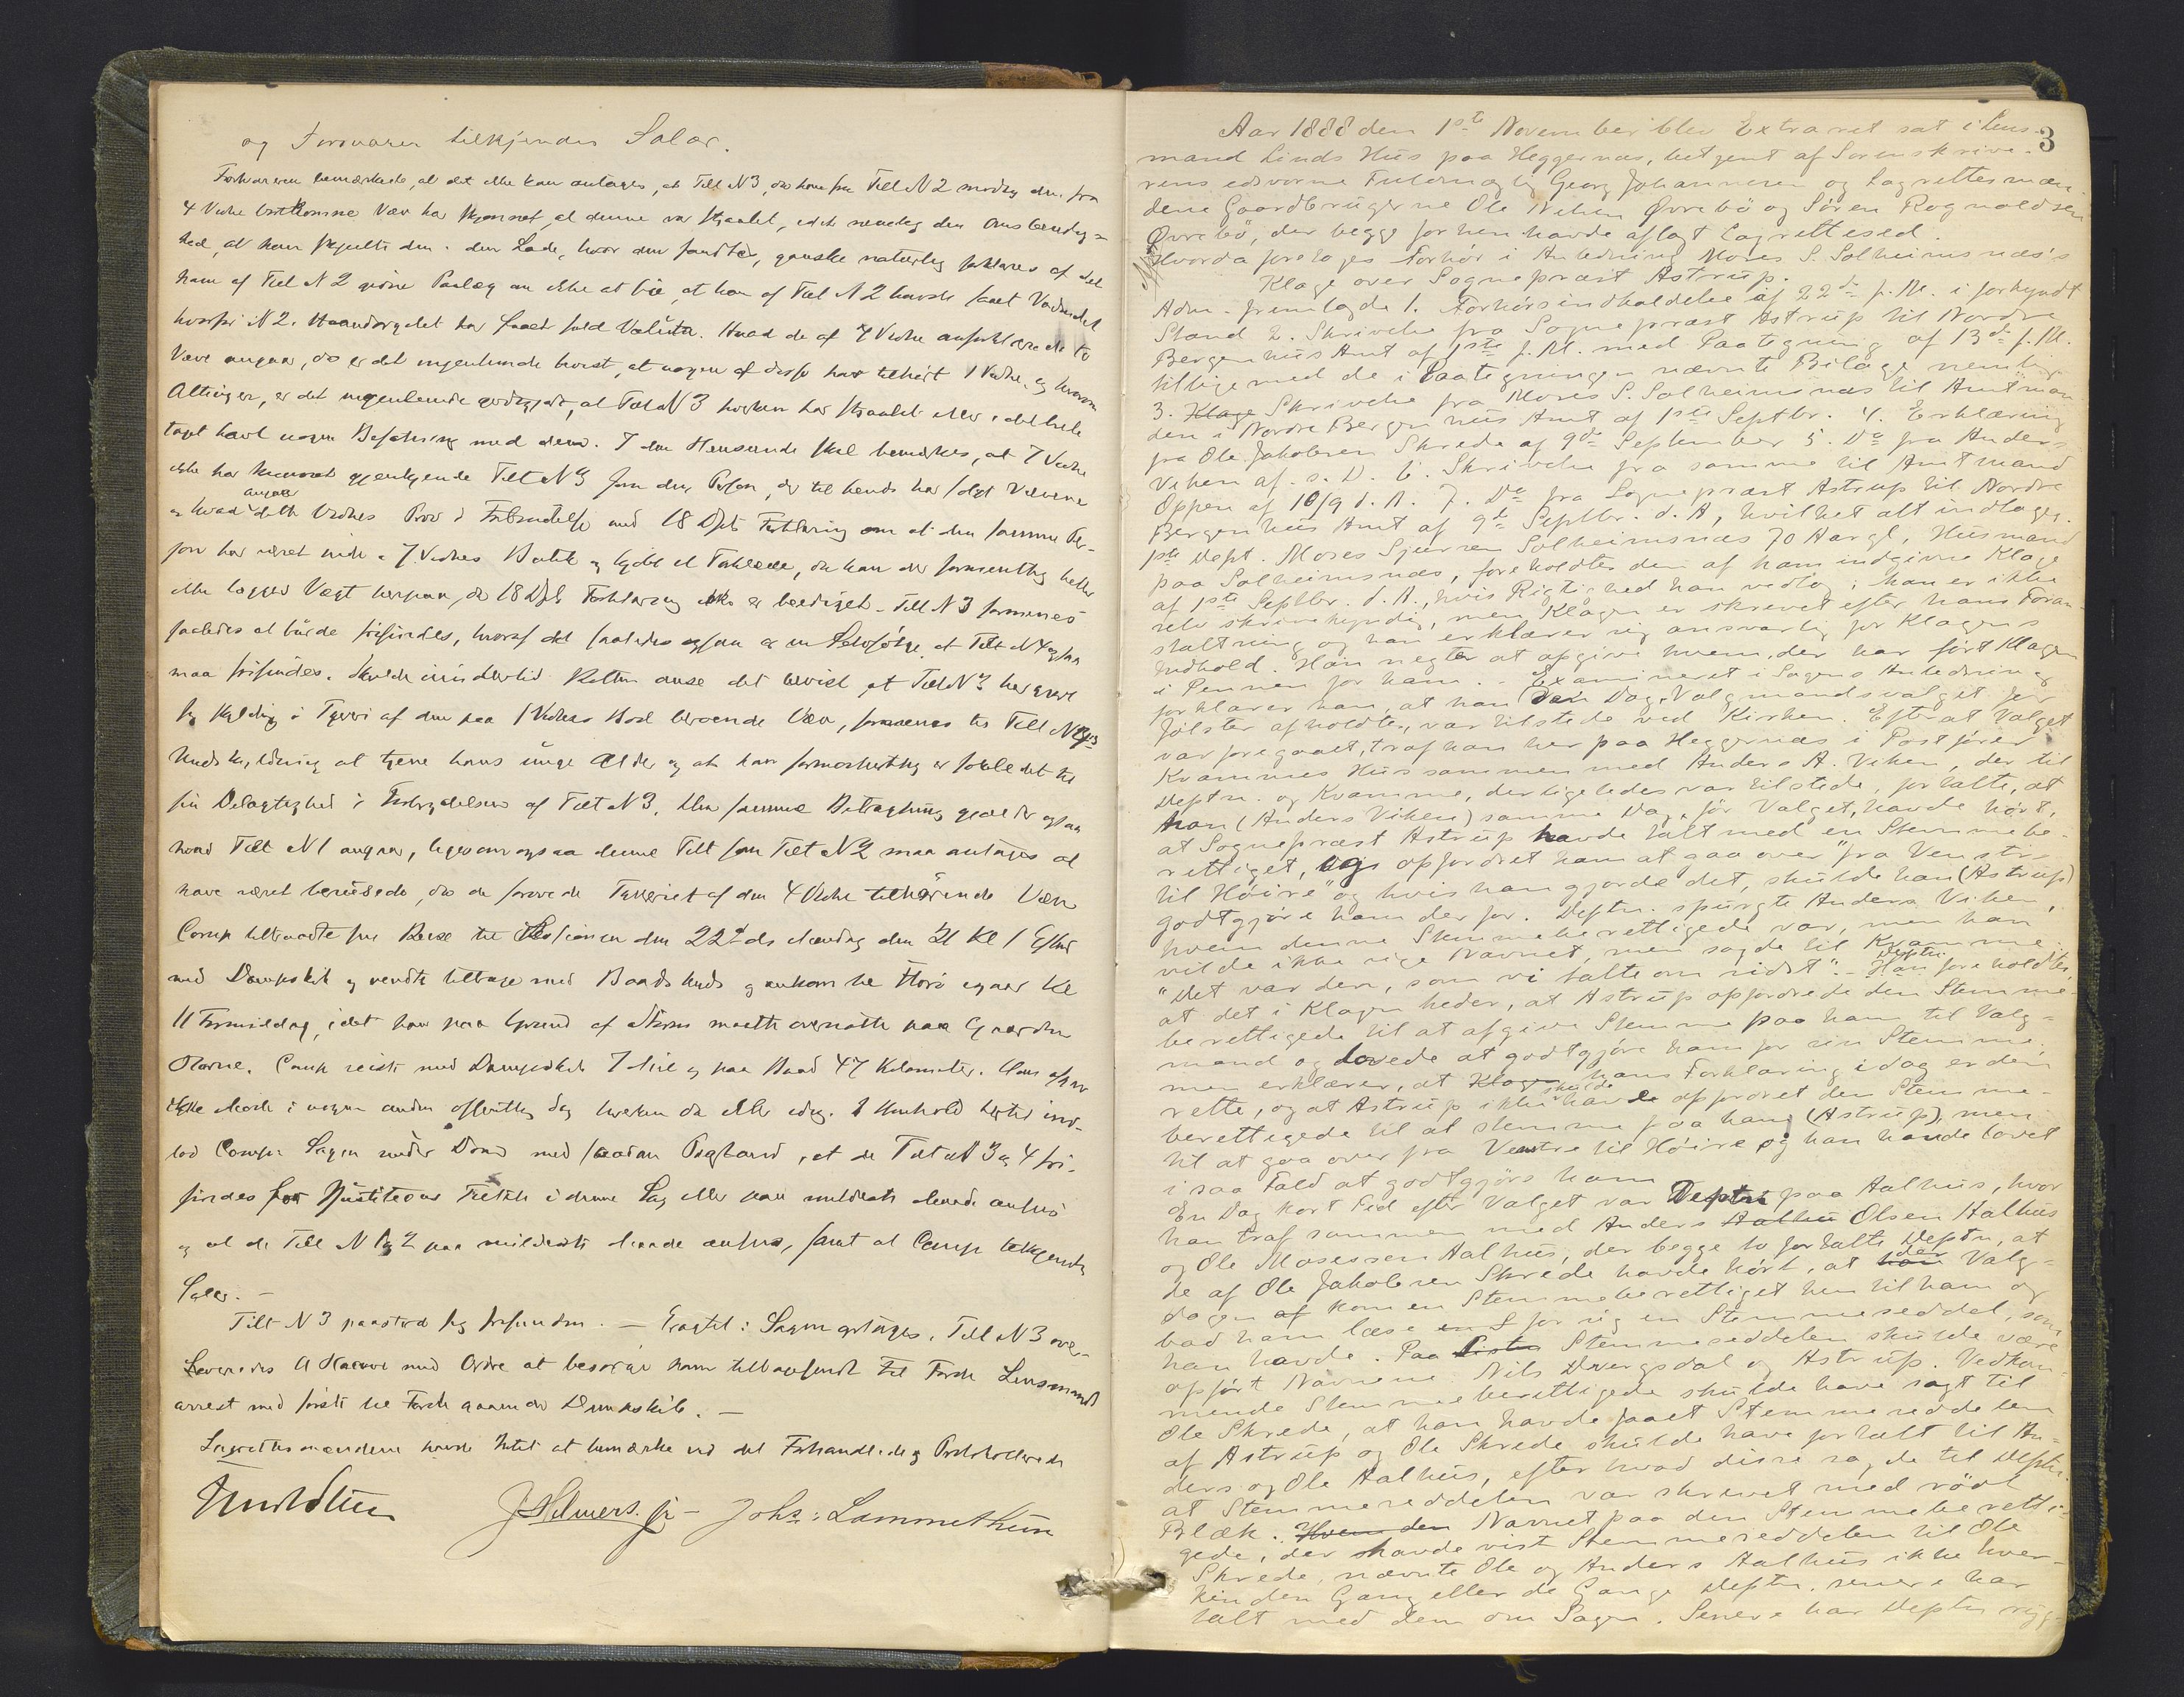 og Forsvaren tilkjendes Salær.
Forsvareren bemærkede, at det ikke kan antages, at Tilt N 3, da han fra Tilt N 2 modtog den fra
4 Vidne bortkomne Væv har skjønnet, at denne var stjaalet, idet nemlig den Omstændig=
hed, at han skjulte den i den Lade, hvor den fandtes, ganske naturlig forklares af det
ham af Tilt N 2 givne Paalæg om ikke at sige, at han af Tilt N 2 havde faaet Vadmelet
hvorfor N 2. har faaet fuld Valuta. Hvad de af 7 Vidne
Væve angaar, da er det ingenlunde bevist, at nogen af disse har tilhørt 1 Vidne, og hvorom
Alting er, er det ingenlunde godtgjort, at Tilt N 3 hverken har stjaalet eller i det hele
taget havt nogen Befatning med dem. I den Henseende skal bemærkes, at 7 Vidne
ikke har kunnet gjenkjende Tilt N 3 som den Person, der til hende har solgt Vævene
angaar
og hvad dette Vidnes Prov i Forbindelse med 18 Dpts Forklaring om at den samme Per-
son har været inde i 7 Vidnes Butik og kjøbt et Tørklæde, da kan der formentlig heller
ikke lægges Vægt herpaa, da 18 Dpts Forklaring ikke er beediget. Tilt N 3 formenes
saaledes at burde frifindes, hvoraf det saaledes ogsaa er en Selvfølge at Tilt N 4 ogsaa
maa frifindes. Skulde imidlertid Retten anse det bevist, at Tilt N 3 har gjort
sig skyldig i Tyveri af den paa 1 Vidnes Bod beroende Væv, formenes til Tilt N 3
Undskyldning at tjene hans unge Alder og at han formodentlig er forledet til
sin Delagtighed i Forbrydelsen af Tilt N 3. Den samme Betragtning gjælder ogsaa
hvad Tilt N 1 angaar, ligesom ogsaa denne Tilt som Tilt N 2 maa antages at
have været berusede, da de forøvede Tyveriet af den 4 Vidne tilhørende Væv
Comp. tiltraadte sin Reise til Sessionen den 22d ds Mandag den 21 Kl 1 Efterm
med Dampskib og vendte tilbage med Baadskyds og ankom til Florø igaar Kl
11 Formiddag, idet han paa Grund af Storm maatte overnatte paa Gaarden
. Comp. reiste med Dampskib 7 Mile og paa Baad 47 Kilometer. Han
ikke Møde i nogen anden offentlig Sag hverken da eller idag. I Henhold hertil ind-
lod Comp. Sagen under Dom med saadan Paastand, at de Tilt N 3 og 4 fri-
findes for Justitiens Tiltale i denne Sag eller paa mildeste Maade ansees
og at de Tilt N 1 og 2 paa mildeste Maade ansees, samt at Comp. tilkjendes
Salær. -
Tilt N 3 paastod sig frifunden. - Eragtet: Sagen optages. Tilt N 3 over-
leveredes A Haave med Ordre at besørge ham tilbagesendt til Førde Lensmands
arrest med første til Førde gaaende Dampskib. -
Lagrettesmændene havde Intet at bemærke ved det Forhandlede og Protokollerede
J. Helmers. jr - Johs: Lammethun
3
Aar 1888 den 1ste November blev Extraret sat i Lens-
mand Linds Hus paa Heggernæs, betjent af Sorenskrive-
rens edsvorne Fuldmægtig Georg Johannesen og Lagrettesmæn-
dene Gaardbrugerne Ole Nilsen Øvrebö og Sören Rognaldsen
Øvrebö, der begge forhen havde aflagt Lagrettesed.
Hvorda foretoges Forhör i Anledning Moses S. Solheimsnæs's
Klage over Sogneprest Astrup.
Adm. fremlagde 1. Forhörsindkaldelse af 22de f. M. i forkyndt
Stand 2. Skrivelse fra Sogneprest Astrup til Nordre
Bergenhus Amt af 1ste f. M. med Paategning af 13de f. M.
tilligemed de i Paategningen nævnte Bilage nemlig
3. Klage Skrivelse fra Moses S. Solheimsnæs til Amtman-
den i Nordre Bergenhus Amt af 1ste Septbr. 4. Erklæring
fra Ole Jakobsen Skrede af 9de September 5. Do fra Anders
Viken af s. D. 6. Skrivelse fra samme til Amtmand
Oppen af 10/9 d. A. 7. Do fra Sogneprest Astrup til Nordre
Bergenhus Amt af 9de Septbr. d. A, hvilket alt indtages.
1ste Dept. Moses Sjursen Solheimsnæs 70 Aargl, Husmand
paa Solheimsnæs, foreholdtes den af ham indgivne Klage
af 1ste Septbr. d. A., hvis Rigtighed han vedtog; han er ikke
selv skrivekyndig, men Klagen er skrevet efter hans Foran-
staltning og han erklærer sig ansvarlig for Klagens
Indhold. Han negter at opgive hvem, der har fört Klagen
i Pennen for ham. - Examineret i Sagens Anledning
forklarer han, at han den Dag, Valgmandsvalget for
Jölster afholdtes, var tilstede ved Kirken. Efterat Valget
var foregaaet, traf han her paa Heggernæs i Postförer
Kvammes Hus sammen med Anders A. Viken, der til
Deptn. og Kvamme, der ligeledes var tilstede, fortalte, at
han (Anders Viken) samme Dag, för Valget, havde hört,
at Sogneprest Astrup havde talt med en Stemmebe-
rettiget, og opfordret ham at gaa over "fra Venstre
til Höire" og hvis han gjorde det, skulde han (Astrup)
godtgjöre ham derfor. Deptn. spurgte Anders Viken,
hvem denne Stemmeberettigede var, men han
vilde ikke sige Navnet, men sagde til Kvamme
Deptn.
"Det var den, som vi talte om sidst". - Han foreholdtes,
at det i Klagen heder, at Astrup opfordrede den Stemme-
berettigede til at afgive Stemme paa ham til Valg-
mand og lovede at godtgjöre ham for sin Stemme,
men erklærer, at Klagen hans Forklaring idag er den
skulde
rette, og at Astrup ikke havde opfordret den Stemme-
berettigede til at stemme paa ham (Astrup), men
til at gaa over fra Venstre til Höire og han havde lovet
i saa Fald at godtgjöre ham
En Dag kort Tid efter Valget var Deptn paa Aalhus, hvor
han traf sammen med Anders Aalhu Olsen Aalhus
og Ole Mosessen Aalhus, der begge to fortalte Deptn, at
der
de af Ole Jakobsen Skrede havde hört, at han Valg-
dagen af kom en Stemmeberettiget hen til ham og
bad ham læse en S for sig en Stemmeseddel, som
han havde. Paa Listen Stemmeseddelen skulde være
opfört Navnene Nils Dvergsdal og Astrup. Vedkom-
mende Stemmeberettigede skulde have sagt til
Ole Skrede, at han havde faaet Stemmeseddelen
af Astrup og Ole Skrede skulde have fortalt til An-
ders og Ole Aalhus, efter hvad disse sagde til Deptn.
at Stemmeseddelen var skrevet med rödt
Blæk. Hvem den Navnet paa den Stemmeberetti-
gede, der havde vist Stemmeseddelen til Ole
Skrede, nævnte Ole og Anders Aalhus ikke hver-
ken den Gang eller de Gange Deptn. senere har
talt med dem om Sagen. Senere har Deptn